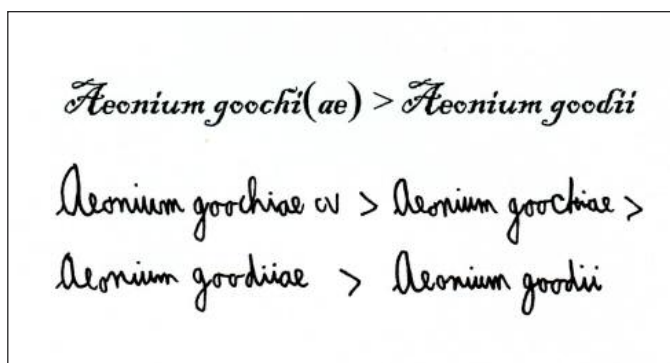 Aeonium goochi(ae) > Aeonium goodii
Aeonium goochiae cv > Aeonium goochiae >
Aeonium goodiiae > Aeonium goodii